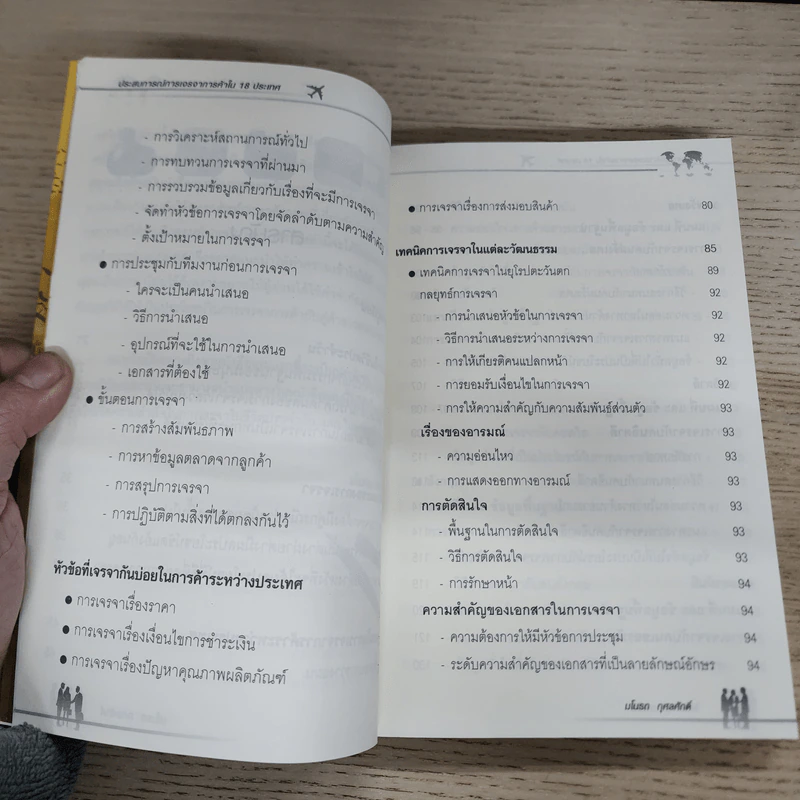 ประสบการณ์การเจรจาการค้าใน 18 ประเทศ
- การวิเคราะห์สถานการณ์ทั่วไป
- การทบทวนการเจรจาที่ผ่านมา
- การรวบรวมข้อมูลเกี่ยวกับเรื่องที่จะมีการเจรจา
- จัดทำหัวข้อการเจรจาโดยจัดลำดับตามความสำคัญ
- ตั้งเป้าหมายในการเจรจา
● การประชุมกับทีมงานก่อนการเจรจา
- ใครจะเป็นคนนำเสนอ
- วิธีการนำเสนอ
- อุปกรณ์ที่จะใช้ในการนำเสนอ
- เอกสารที่ต้องใช้
● ขั้นตอนการเจรจา
- การสร้างสัมพันธภาพ
- การหาข้อมูลตลาดจากลูกค้า
- การสรุปการเจรจา
- การปฏิบัติตามสิ่งที่ได้ตกลงกันไว้
หัวข้อที่เจรจากันบ่อยในการค้าระหว่างประเทศ
● การเจรจาเรื่องราคา
● การเจรจาเรื่องเงื่อนไขการชำระเงิน
● การเจรจาเรื่องปัญหาคุณภาพผลิตภัณฑ์
● การเจรจาเรื่องการส่งมอบสินค้า 80
เทคนิคการเจรจาในแต่ละวัฒนธรรม 85
● เทคนิคการเจรจาในยุโรปตะวันตก 89
กลยุทธ์การเจรจา 92
- การนำเสนอหัวข้อในการเจรจา 92
- วิธีการนำเสนอระหว่างการเจรจา 92
- การให้เกียรติคนแปลกหน้า 92
- การยอมรับเงื่อนไขในการเจรจา 92
- การให้ความสำคัญกับความสัมพันธ์ส่วนตัว 93
เรื่องของอารมณ์ 93
- ความอ่อนไหว 93
- การแสดงออกทางอารมณ์ 93
การตัดสินใจ 93
- พื้นฐานในการตัดสินใจ 93
- วิธีการตัดสินใจ 93
- การรักษาหน้า 94
ความสำคัญของเอกสารในการเจรจา 94
- ความต้องการให้มีหัวข้อการประชุม 94
- ระดับความสำคัญของเอกสารที่เป็นลายลักษณ์อักษร 94
มโนธก กุศลศักดิ์